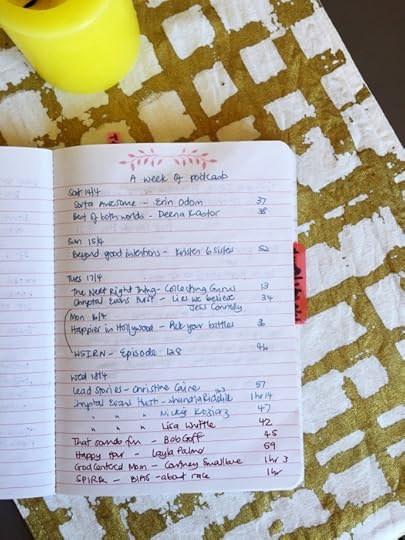 A week of podcasts
Sat 14/4
Sorta Awesome - Erin Odom 37
Best of both worlds - Deena Kastor 38
Sun 15/4
Beyond good intentions - Kristen & sister 52
Tues 17/4
The Next Right Thing - Collecting Gurus 13
Chrystal Evans Hurst - Lies we believe 34
Jess Connolly
Mon 16/4
Happier in Hollywood - Pick your battles
WSIRN - Episode 128 46
Wed 18/4
Lead Stories - Christine Caine 57
Chrystal Evans Hurst - 1hr 14
" " " Nicki Koziarz 47
" " " Lisa Whittle 42
That sounds fun - Bob Goff 45
Happy hour - Layla Palmer 59
God Centered Mom - Courtney 1hr 3
- BIAS - about race 1hr